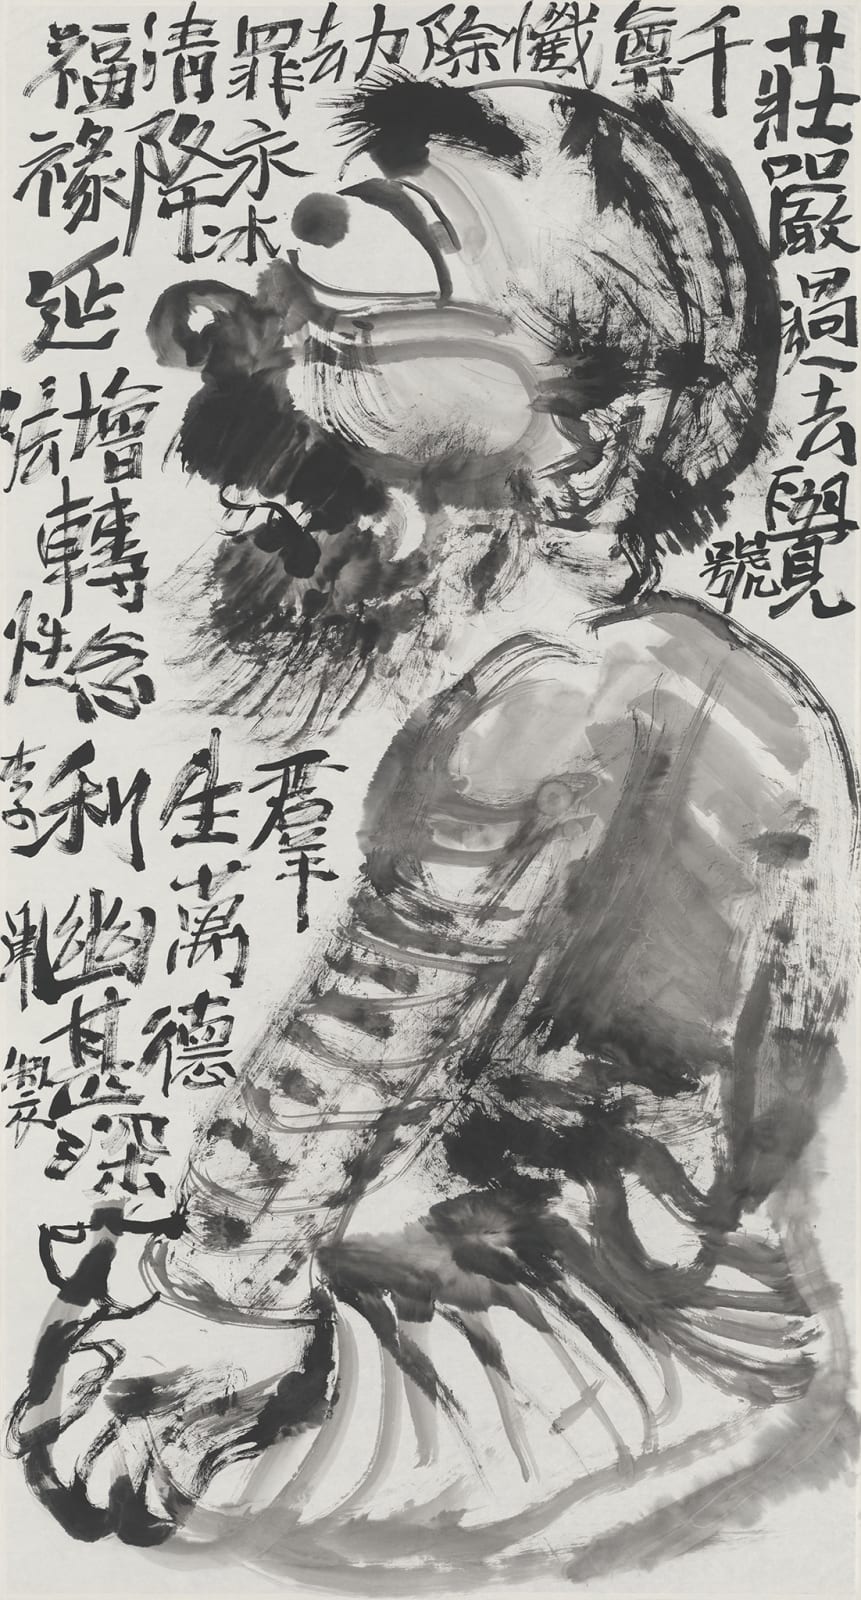 莊嚴過去覺
號
千尊懺除劫罪永冰
清降
福祿延
群
生萬德
增轉念利幽甚深
法性
李
製